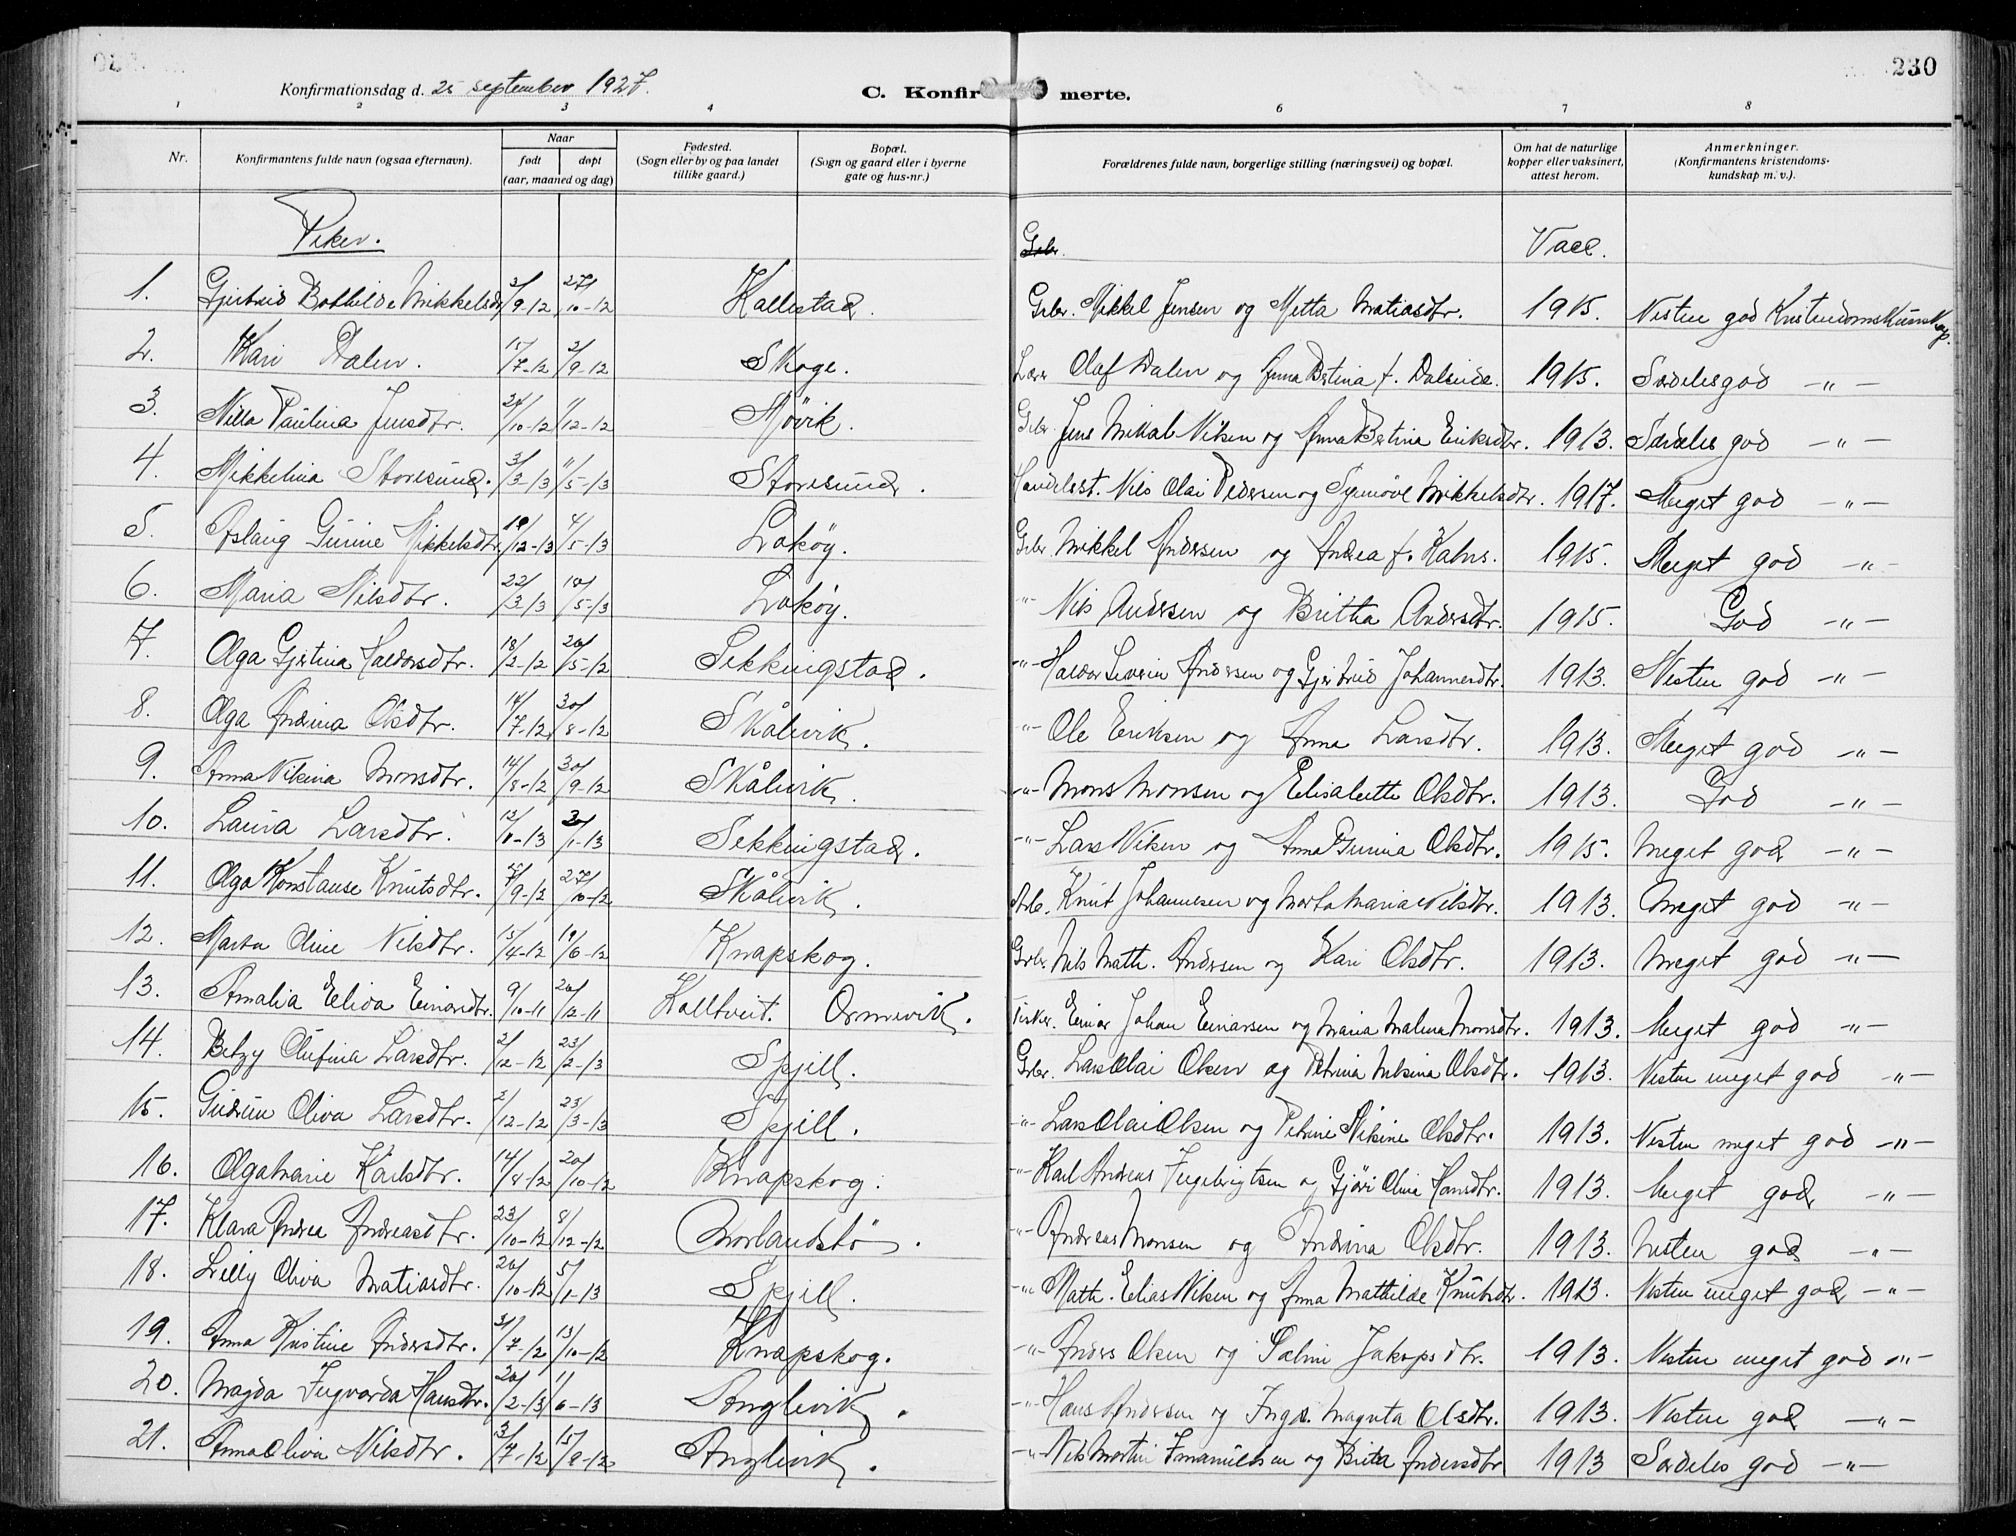 230
Konfirmationsdag d. 25 september 1927.
C. Konfirmerte.
1 2 3 4 6 7 8
Nr. Konfirmantens fulde navn (ogsaa efternavn). Naar født døpt (aar, maaned og dag) Fødested. (Sogn eller by og paa landet tillike gaard.) Bopæl. (Sogn og gaard eller i byerne gate og hus-nr.) Forældrenes fulde navn, borgerlige stilling (næringsvei) og bopæl. Om hat de naturlige kopper eller vaksinert, attest herom. Anmerkninger. (Konfirmantens kristendoms-kundskap m. v.).
Piker. Vacc.
1. Gjertrud Bothilde Mikkelsdtr 2/9-12 27/10-12 Kallestad. Gbr. Mikkel Jensen og Metta Matiasdtr. 1915. Nesten god Kristendomskunskap.
2. Kari Dalen. 15/7-12 2/9-12 Skoge. Lærer Olaf Dalen og Anna Bertina f. Dalseide. 1915. Særdeles god -"-
3. Nilla Paulina Jensdtr. 24/10-12 11/12-12 Møvik. Gbr. Jens Mikal Nilsen og Anna Bertina Eriksdtr. 1913. Særdeles god -"-
4. Mikkelina Storesund. 3/3-13 11/5-13 Storesund. Handelsst. Nils Olai Pedersen og Synnøve Mikkelsdtr. 1917. Meget god -"-
5. Aslaug Gurine Mikkelsdtr. 19/12-13 4/5-13 Lokøy. Gbr. Mikkel Andersen og Andrea f. Kahrs. 1915. Meget god -"-
6. Maria Nilsdtr. 22/3-13 18/5-13 Lokøy. -"- Nils Andersen og Britha Andersdtr. 1915. God -"-
7. Olga Gjertina Haldorsdtr. 18/2-12 20/5-12 Sekkingstad. -"- Haldor Severin Andersen og Gjertrud Johannesdtr. 1913. Nesten god -"-
8. Olga Andrina Olsdtr. 14/7-12 30/8-12 Skålvik. -"- Ole Eriksen og Anna Larsdtr. 1913. Meget god -"-
9. Anna Nikina Monsdtr. 14/8-12 30/9-12 Skålvik. -"- Mons Monsen og Elisabetta Olsdtr. 1913. God -"-
10. Laura Larsdtr. 13/10-13 /1-13 Sekkingstad. -"- Lars Nilsen og Anna Gurina Olsdtr. 1915. Meget god -"-
11. Olga Konstanse Knutsdtr. /9-12 27/10-12 Skålvik. Arb. Knut Johannesen og Marta Maria Nilsdtr. 1913. Meget god -"-
12. Marta Oline Nilsdtr. 15/4-12 19/6-12 Knapskog. Gbr. Nils Math. Andersen og Kari Olsdtr. 1913. Meget god -"-
13. Amalia Elida Einarsdtr. 9/10-11 20/12-11 Kalltveit. Ormevik. Fisker. Einar Johan Einarsen og Maria Malena Monsdtr. 1913. Meget god -"-
14. Betzy Olufina Larsdtr. 2/12-12 23/2-13 Spjell. Gbr. Lars Olai Olsen og Petrina Nikina Olsdtr. 1913. Nesten meget god -"-
15. Gudrun Oliva Larsdtr. 2/12-12 23/3-13 Spjell. -"- Lars Olai Olsen og Petrine Nikine Olsdtr. 1913. Nesten meget god -"-
16. Olga Marie Karlsdtr. 14/8-12 20/10-12 Knapskog. -"- Karl Andreas Ingebrigtsen og Gjøri Olina Hansdtr. 1913. Meget god -"-
17. Klara Andrea Andreasdtr. 23/10-12 8/12-12 Morlandstø. -"- Andreas Monsen og Andrina Olsdtr. 1913. Nesten god -"-
18. Lilly Oliva Matiasdtr. 20/10-12 5/1-13 Spjell. -"- Math. Elias Nilsen og Anna Mathilde Knutsdtr. 1913. Nesten meget god -"-
19. Anna Kristine Andersdtr. 31/7-12 13/10-12 Knapskog. -"- Anders Olsen og Salmi Jakopsdtr. 1913. Nesten meget god -"-
20. Magda Ingvarda Hansdtr. 20/2-13 1/6-13 Anglevik. -"- Hans Andersen og Inga Magnta Olsdtr. 1913. Nesten god -"-
21. Anna Oliva Nilsdtr. 3/7-12 15/9-12 Anglevik. -"- Nils Martin Immanuelsen og Brita Andersdtr 1913 Særdeles god -"-